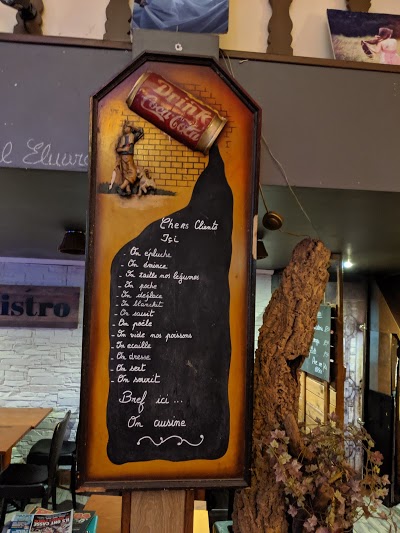 Drink
Coca-Cola
l Eluard
Chers Clients
Ici
- On épluche
- On émince
- On taille nos légumes
- On poche
- On déglace
- On blanchit
- On saisit
- On poêle
- On vide nos poissons
- On écaille
- On dresse
- On sert
- On sourit
Bref ici ...
On cuisine
istro